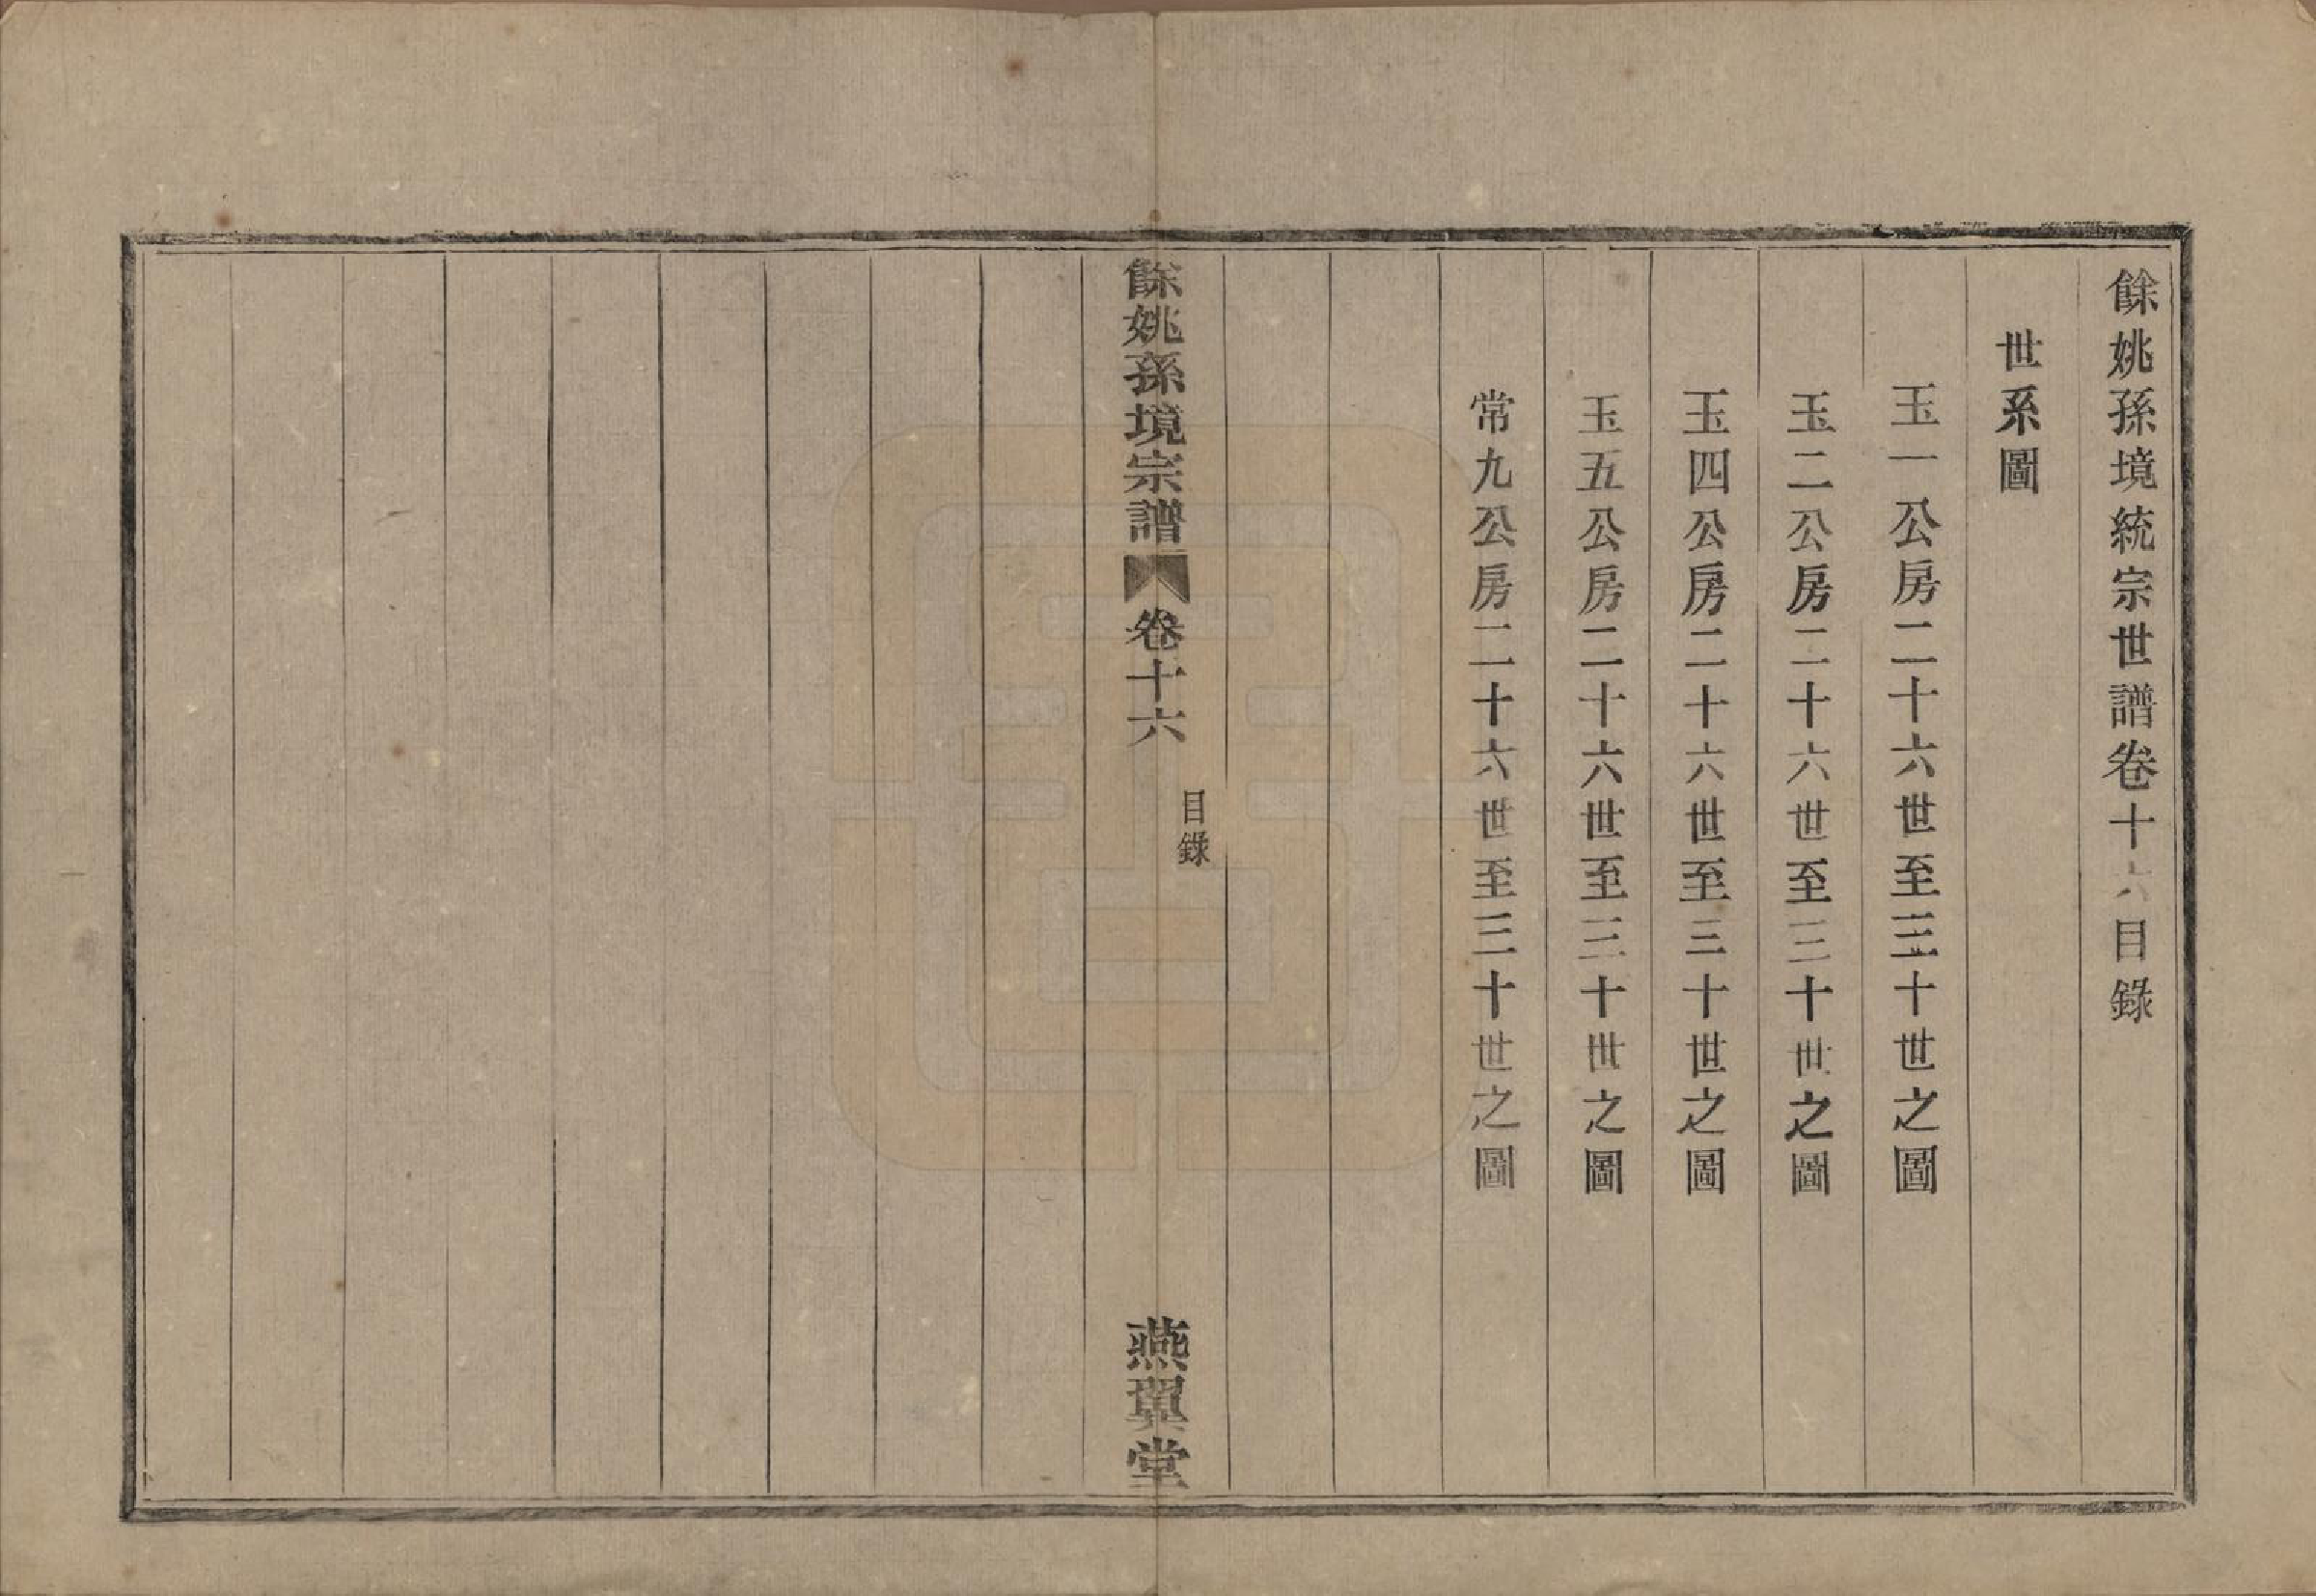 餘姚孫境統宗世譜卷十六目錄
世系圖
玉一公房二十六世至三十世之圖
玉二公房二十六世至三十世之圖
玉四公房二十六世至三十世之圖
玉五公房二十六世至三十世之圖
常九公房二十六世至三十世之圖
餘姚孫境宗譜
卷十六
目錄
燕翼堂